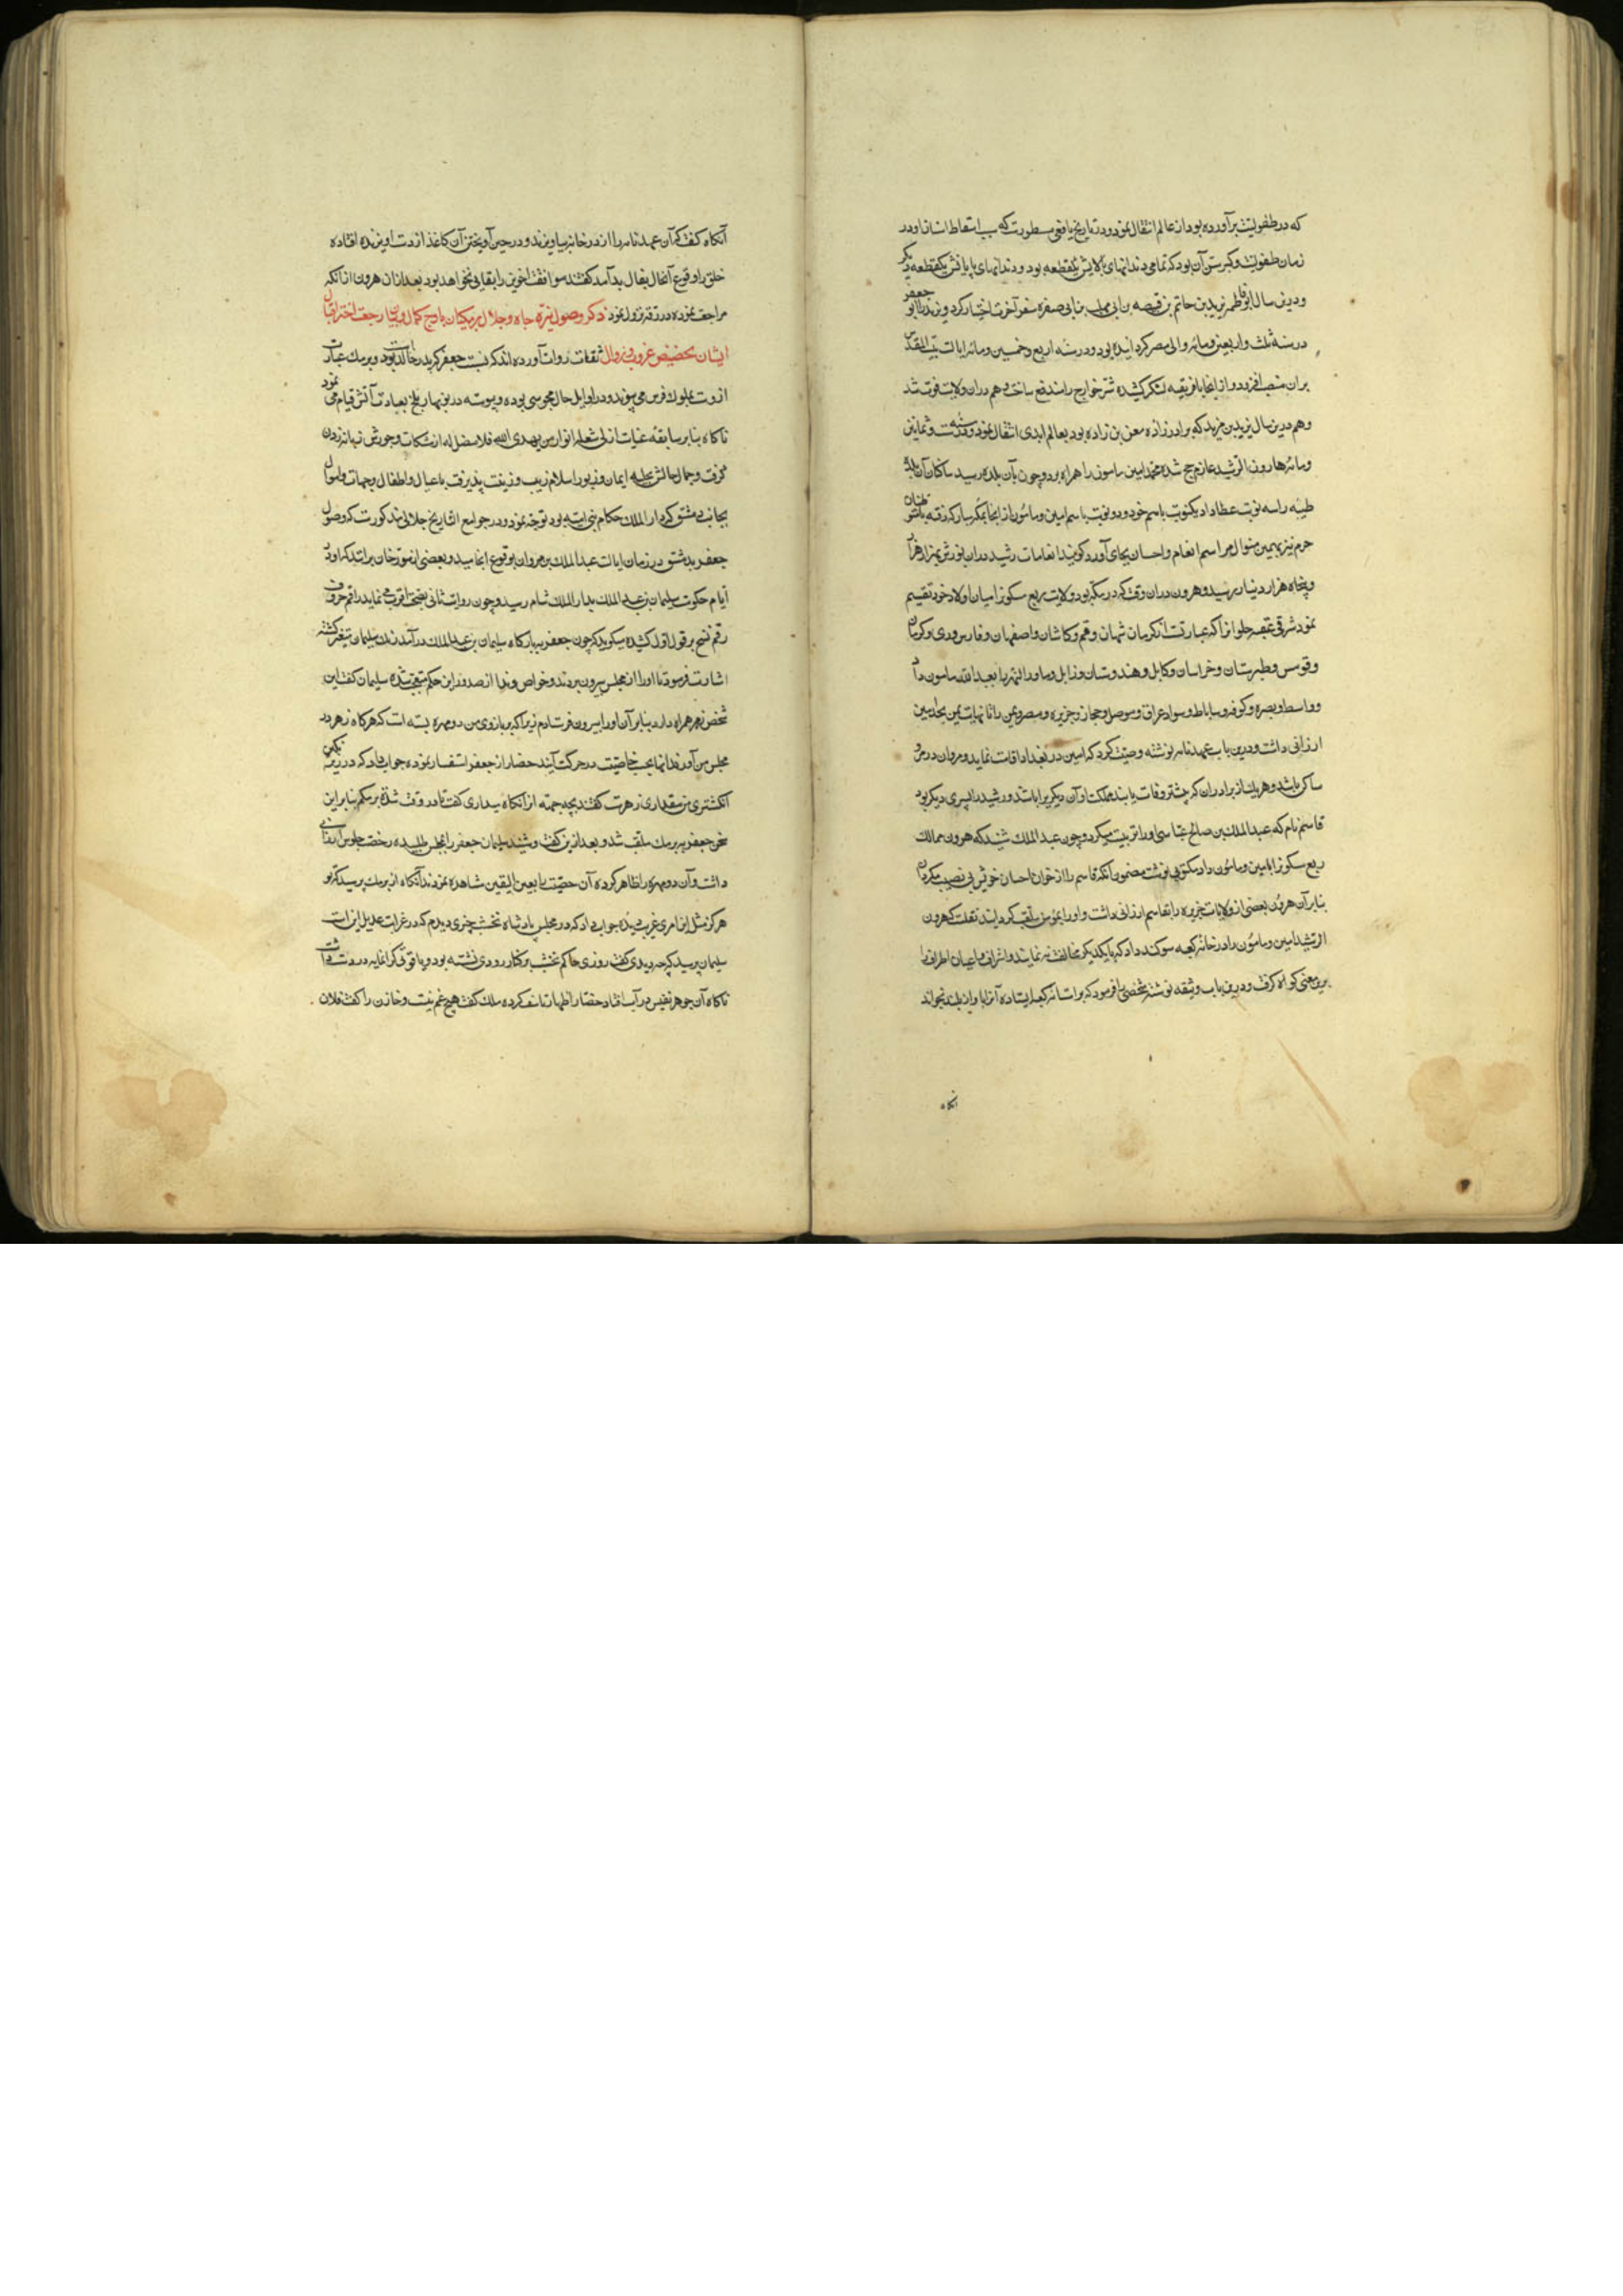 که در طفولیت برآورده بود از عالم انتقال نمود و در تاریخ یافعی مسطورست که سبب اسقاط اسنان او در
زمان طفولیت و کبر سن آن بود که تمامی دندانهای بالایش یکقطعه بود و دندانهای پایانش یکقطعه دیگر
و درین سال یزید بن حاتم بن قبیصه بن ابی مهلب بن ابی صفره سفر آخرت اختیار کرد و یزید را ابو جعفر
در سنه ثلث و اربعین و مائه والی مصر گردانیده بود و در سنه اربع و خمسین و مائه ایالت بیت المقدس
بران منصب افزود و از انجا بافریقیه لشکر کشیده شر خوارج را مندفع ساخت و هم دران ولایت فوت شد
و هم درین سال یزید بن مزید که برادرزاده معن بن زاده بود بعالم ابدی انتقال نمود و در سنه ست و ثمانین
و مائه هارون الرشید عازم حج شده محمد امین مامون را همراه برد و چون بآن بلده رسید ساکنان آن بلده
طیبه را سه نوبت عطا داد یکنوبت باسم خود و دو نوبت باسم امین و مامون از انجا بمکه مبارکه رفته با متوطنان
حرم نیز بهمین منوال مراسم انعام و احسان بجای آورد گویند انعامات رشید دران یورش بهزار هزار
و پنجاه هزار دینار رسید و هرون دران وقت که در مکه بود ولایت ربع مسکون را میان اولاد خود تقسیم
نمود شرقی عقبه حلوان را که عبارتست از کرمان شهان و قم و کاشان و اصفهان و فارس و ری و کرمان
و قومس و طبرستان و خراسان و کابل و هندوستان و زابل و ماوراء النهر را بعبد الله مامون داد
و واسط و بصره و کوفه و ساباط و سواد عراق و موصل و حجاز و جزیره و مصر و یمن را تا نهایت یمن بمحمد امین
ارزانی داشت و درین باب عهدنامه نوشته وصیت کرد که امین در بغداد اقامت نماید و مامون در مرو
ساکن باشد و هریک از برادران که پیشتر وفات یابند مملکت او آن دیگر را باشد و رشید را پسری دیگر بود
قاسم نام که عبد الملک بن صالح عباسی او را تربیت میکرد و چون عبد الملک شنید که هرون ممالک
ربع مسکون را بامین و مامون داد مکتوبی نوشت مضمون آنکه قاسم را از خوان احسان خویش بی نصیب مگردان
بنابر آن هرون بعضی از ولایات جزیره را بقاسم ارزانی داشت و او را مؤتمن لقب گردانید نقلست که هرون
الرشید امین و مامون را در خانه کعبه سوگند داد که با یکدیگر مخالفت نه نمایند و اشراف و اعیان اطراف را
برین معنی گواه گرفت و درین باب وثیقه نوشته شخصی را فرمود که بر آستانه کعبه ایستاده آنرا بآواز بلند بخواند
آنگاه
آنگاه گفت که آن عهدنامه را از در خانه بیاویزند و در حین آویختن آن کاغذ از دست آویزنده افتاده
خلق را وقوع آنحال بفال بد آمد گفتند موافقت اخوین را بقایی نخواهد بود بعد ازان هرون از انکه
مراجعت نموده در رقه نزول نمود ذکر وصول نیره جاه و جلال برمکیان باوج کمال و بیان رجعت اختر اقبال
ایشان بحضیض غروب و زوال ثقات روات آورده اند که نسبت جعفر که پدر خالد بود و برمک عبارت
ازوست بملوک فرس می پیوندد و در اوایل حال مجوسی بوده و پیوسته در نوبهار بلخ بعبادت آتش قیام می نمود
ناگاه بنابر سابقه عنایت ازلی شعله انوار من یهدی الله فلا مضل له از مشکات وجودش زبانه زدن
گرفت و جمال حالش بحلیه ایمان و زیور اسلام زیب و زینت پذیرفت با عیال و اطفال و جهات و اموال
بجانب دمشق که دار الملک حکام بنی امیه بود توجه نمود و در جوامع التاریخ جلالی مذکورست که وصول
جعفر بدمشق در زمان ایالت عبد الملک بن مروان بوقوع انجامید و بعضی از مورخان برانند که او در
ایام حکومت سلیمان بن عبد الملک بدار الملک شام رسید و چون روایت ثانی بصحت اقرب می نماید راقم حروف
رقم نسخ بر قول اول کشیده میگوید که چون جعفر ببارگاه سلیمان بن عبد الملک در آمد رنگ سلیمان متغیر گشته
اشارت فرمود تا او را از مجلس بیرون بردند و خواص و ندما از صدور این حکم متعجب شده سلیمان گفت این
شخص زهر همراه دارد بنابر آن او را بیرون فرستادم زیرا که بر بازوی من دو مهره بسته است که هرگاه زهر در
مجلس من آورند انها بحسب خاصیت در حرکت آیند حضار از جعفر استفسار نموده جواب داد که در زیر نگین
انگشتری من مقداری زهرست گفتند بچه جهته از انگاه میداری گفت تا در وقت شدة برمکم بنابر این
سخن جعفر ببرمک ملقب شد و بعد ازین گفت و شنید سلیمان جعفر را بمجلس طلبیده رخصت جلوس ارزانی
داشت و آن دو مهره را ظاهر کرده آن خصیت را بعین الیقین مشاهده نمودند آنگاه از برمک پرسید که تو
هرگز مثل این امری غریب دیده جواب داد که در مجلس پادشاه نخشب چیزی دیدم که در غرابت عدیل این است
سلیمان پرسید که چه دیدی گفت روزی حاکم نخشب بر کنار رودی نشسته بود و یاقوتی گرانمایه در دست داشت
ناگاه آن جوهر نفیس در آب افتاد حضار اظهار تاسف کرده ملک گفت هیچ غم نیست و خازن را گفت فلان